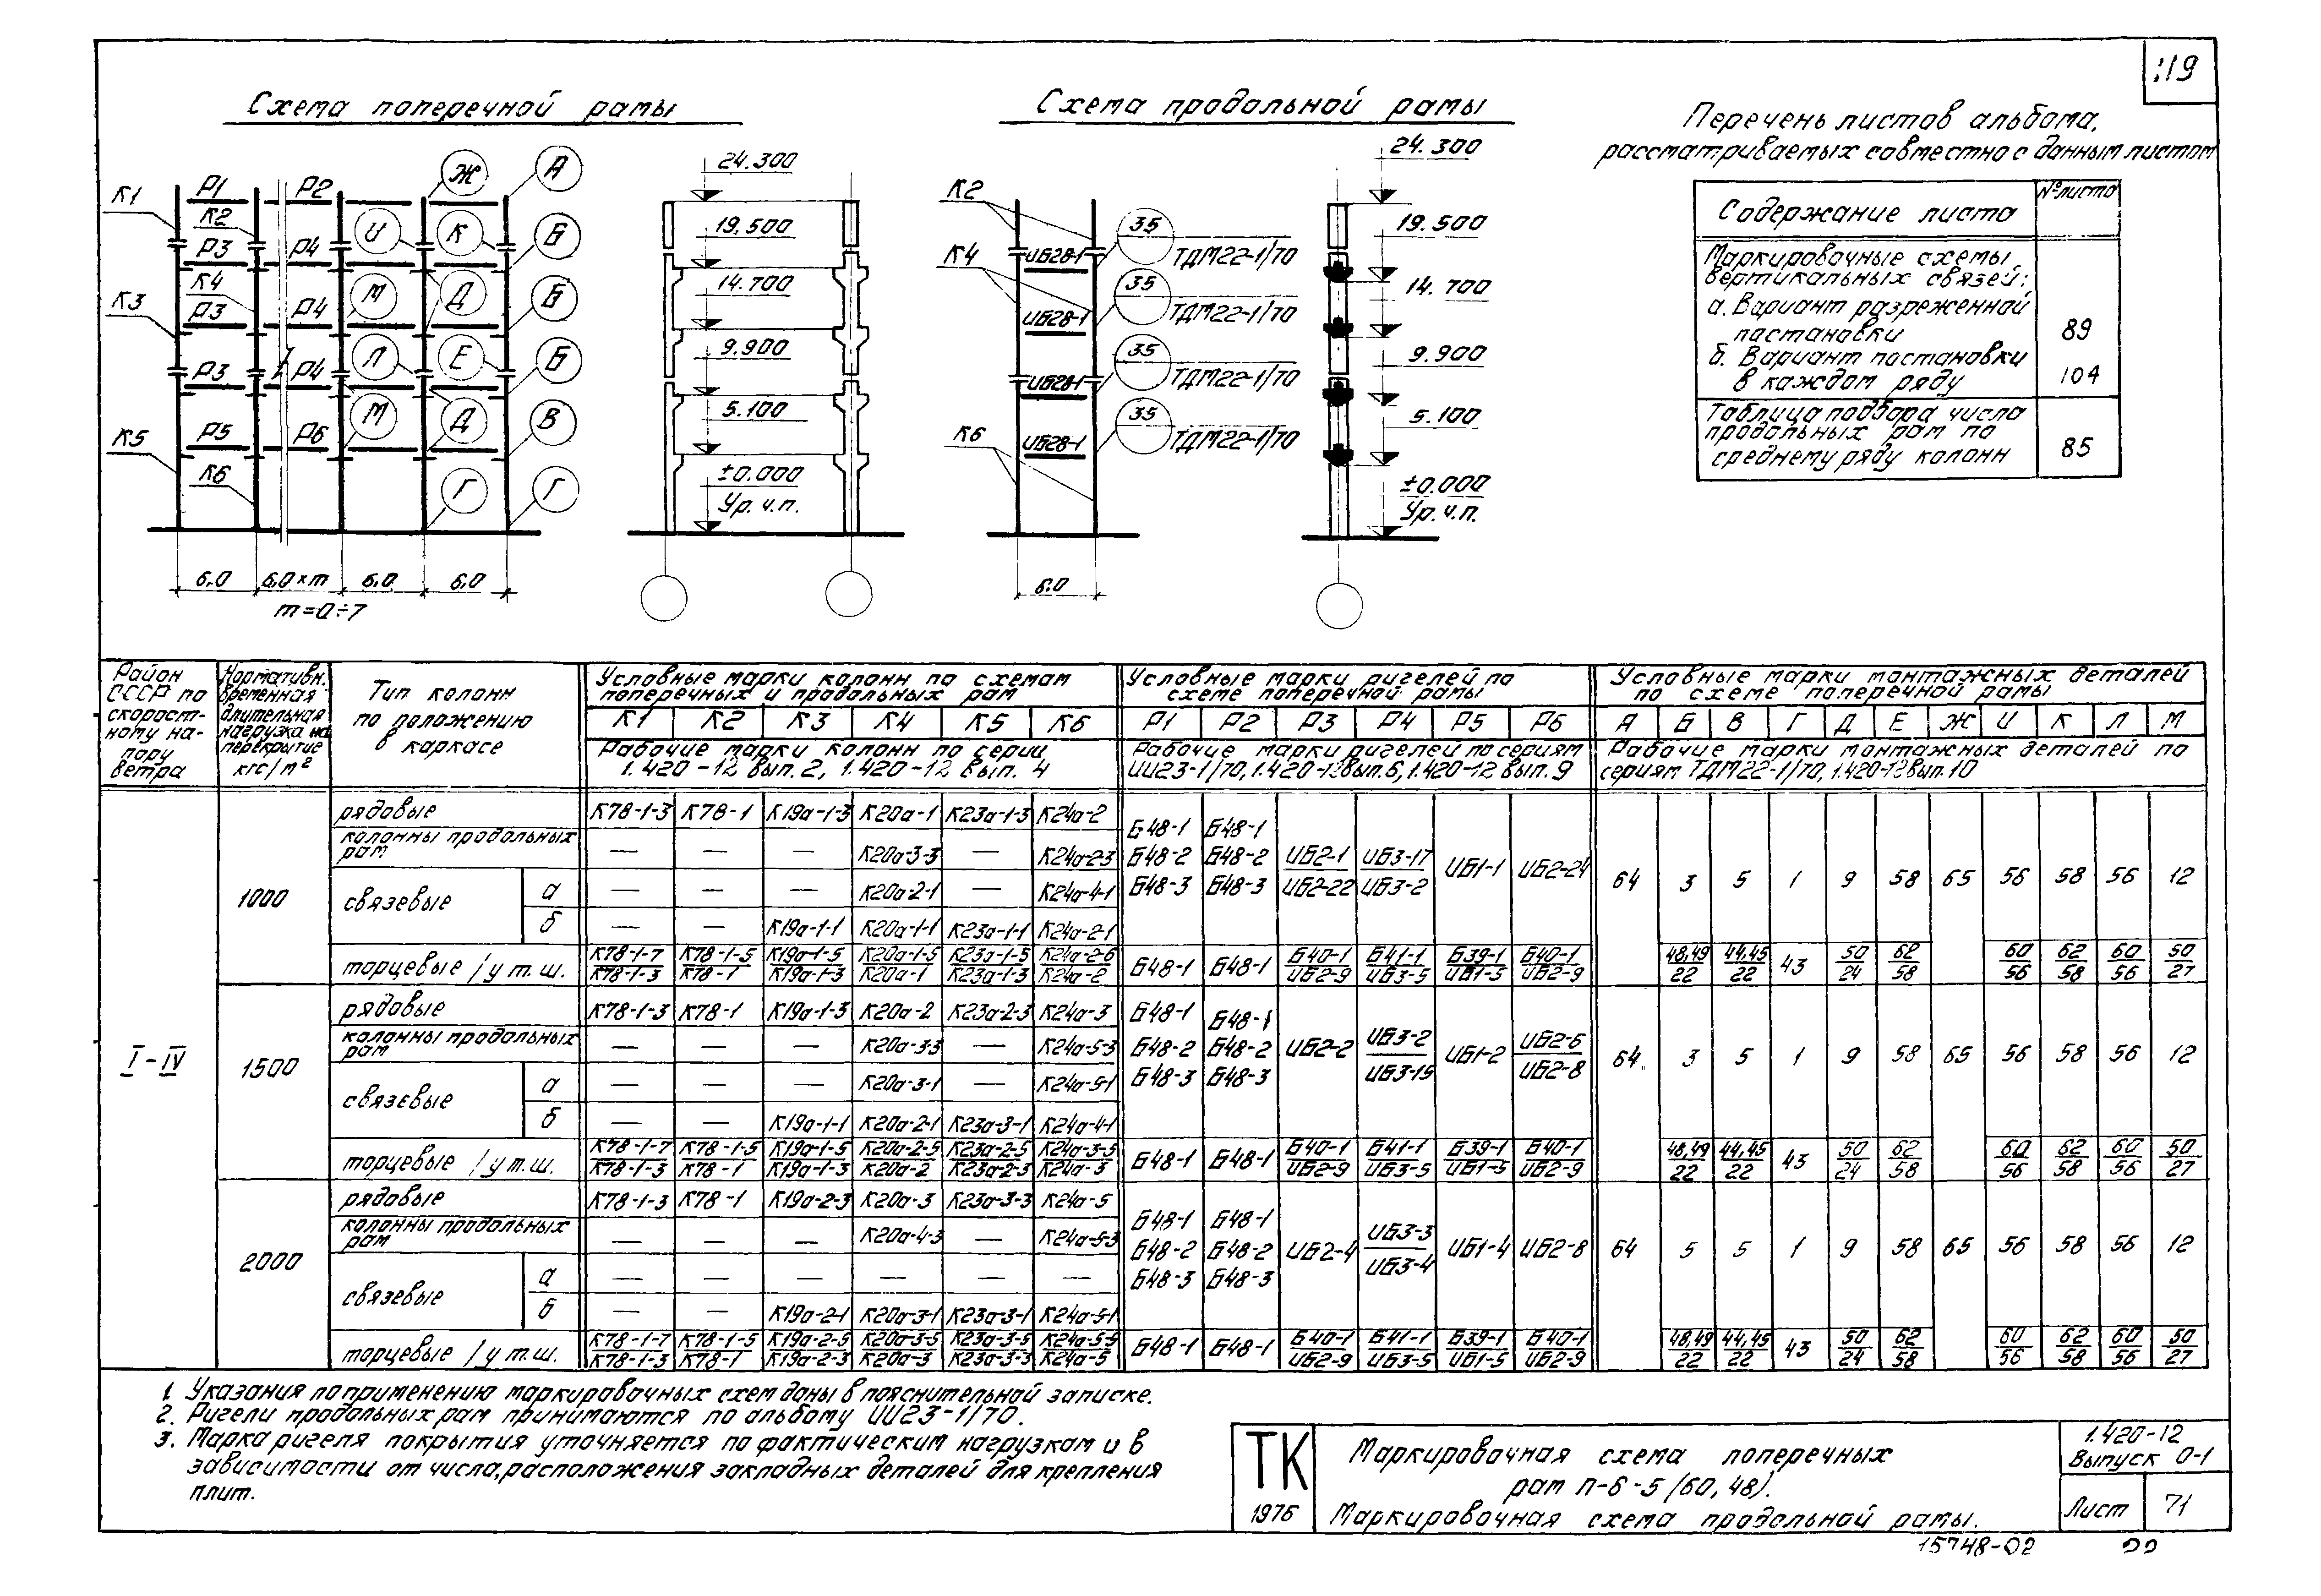 119
Схема поперечной рамы
Схема продольной рамы
Перечень листов альбома,
рассматриваемых совместно с данным листом
Содержание листа №листа
Маркировочные схемы
вертикальных связей:
а. Вариант разреженной
постановки 89
б. Вариант постановки
в каждом ряду 104
Таблица подбора числа
продольных рам по
среднему ряду колонн 85
К1 Р1 К2 Р2 Ж А
Р3 Р4 И К Б
К3 К4 Р3 Р4 М Д Б
Р3 Р4 Л Е Б
К5 Р5 Р6 М Д В
К6 Г Г
6.0 6.0×m 6.0 6.0
m=0÷7
24.300
19.500
14.700
9.900
5.100
±0.000
Ур.ч.п.
К2
К4
К6
ИБ28-1 35 ТДМ22-1/70
ИБ28-1 35 ТДМ22-1/70
ИБ28-1 35 ТДМ22-1/70
ИБ28-1 35 ТДМ22-1/70
6.0
24.300
19.500
14.700
9.900
5.100
±0.000
Ур.ч.п.
Район СССР по скоростному напору ветра
Нормативн. временная длительная нагрузка на перекрытие кгс/м²
Тип колонн по положению в каркасе
Условные марки колонн по схемам поперечных и продольных рам
Условные марки ригелей по схеме поперечной рамы
Условные марки монтажных деталей по схеме поперечной рамы
К1 К2 К3 К4 К5 К6 Р1 Р2 Р3 Р4 Р5 Р6 А Б В Г Д Е Ж И К Л М
Рабочие марки колонн по серии 1.420-12 вып. 2, 1.420-12 вып. 4
Рабочие марки ригелей по сериям ИИ23-1/70, 1.420-12 вып.6, 1.420-12 вып. 9
Рабочие марки монтажных деталей по сериям ТДМ22-1/70, 1.420-12 вып.10
I-IV
1000
рядовые К78-1-3 К78-1 К19а-1-3 К20а-1 К23а-1-3 К24а-2
колонны продольных рам — — — К20а-3-3 — К24а-2-3
связевые а — — — К20а-2-1 — К24а-4-1
б — — К19а-1-1 К20а-1-1 К23а-1-1 К24а-2-1
Б48-1 Б48-2 Б48-3 Б48-1 Б48-2 Б48-3 ИБ2-1 ИБ2-22 ИБ3-17 ИБ3-2 ИБ1-1 ИБ2-24 64 3 5 1 9 58 65 56 58 56 12
торцевые / у т.ш. К78-1-7 К78-1-3 К78-1-5 К78-1 К19а-1-5 К19а-1-3 К20а-1-5 К20а-1 К23а-1-5 К23а-1-3 К24а-2-6 К24а-2 Б48-1 Б48-1 Б40-1 ИБ2-9 Б41-1 ИБ3-5 Б39-1 ИБ1-5 Б40-1 ИБ2-9 48,49 22 44,45 22 43 50 24 62 58 60 56 62 58 60 56 50 27
1500
рядовые К78-1-3 К78-1 К19а-1-3 К20а-2 К23а-2-3 К24а-3
колонны продольных рам — — — К20а-3-3 — К24а-5-3
связевые а — — — К20а-3-1 — К24а-5-1
б — — К19а-1-1 К20а-2-1 К23а-3-1 К24а-4-1
Б48-1 Б48-2 Б48-3 Б48-1 Б48-2 Б48-3 ИБ2-2 ИБ3-2 ИБ3-15 ИБ1-2 ИБ2-6 ИБ2-8 64 3 5 1 9 58 65 56 58 56 12
торцевые / у т.ш. К78-1-7 К78-1-3 К78-1-5 К78-1 К19а-1-5 К19а-1-3 К20а-2-5 К20а-2 К23а-2-5 К23а-2-3 К24а-3-5 К24а-3 Б48-1 Б48-1 Б40-1 ИБ2-9 Б41-1 ИБ3-5 Б39-1 ИБ1-5 Б40-1 ИБ2-9 48,49 22 44,45 22 43 50 24 62 58 60 56 62 58 60 56 50 27
2000
рядовые К78-1-3 К78-1 К19а-2-3 К20а-3 К23а-3-3 К24а-5
колонны продольных рам — — — К20а-4-3 — К24а-5-3
связевые а — — — — — —
б — — К19а-2-1 К20а-3-1 К23а-3-1 К24а-5-1
Б48-1 Б48-2 Б48-3 Б48-1 Б48-2 Б48-3 ИБ2-4 ИБ3-3 ИБ3-4 ИБ1-4 ИБ2-8 64 5 5 1 9 58 65 56 58 56 12
торцевые / у т.ш. К78-1-7 К78-1-3 К78-1-5 К78-1 К19а-2-5 К19а-2-3 К20а-3-5 К20а-3 К23а-3-5 К23а-3-3 К24а-5-5 К24а-5 Б48-1 Б48-1 Б40-1 ИБ2-9 Б41-1 ИБ3-5 Б39-1 ИБ1-5 Б40-1 ИБ2-9 48,49 22 44,45 22 43 50 24 62 58 60 56 62 58 60 56 50 27
1. Указания по применению маркировочных схем даны в пояснительной записке.
2. Ригели продольных рам принимаются по альбому ИИ23-1/70.
3. Марка ригеля покрытия уточняется по фактическим нагрузкам и в
зависимости от числа, расположения закладных деталей для крепления
плит.
ТК
1976
Маркировочная схема поперечных
рам П-6-5 (60, 48).
Маркировочная схема продольной рамы.
1.420-12
Выпуск 0-1
Лист 71
15748-02